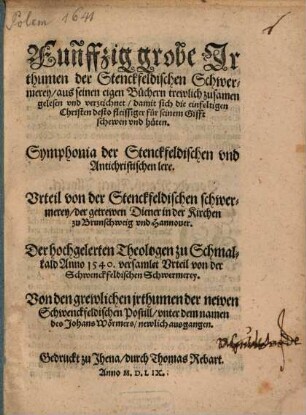 Polem 1641
Funffzig grobe Jr
thumen der Stenckfeldischen Schwer-
merey/aus seinen eigen Büchern trewlich zusamen
gelesen vnd verzeichnet/damit sich die einfeltigen
Christen desto fleissiger für seinem Gifft
schewen vnd hüten.
Symphonia der Stenckfeldischen vnd
Antichristischen lere.
Vrteil von der Stenckfeldischen schwer-
merey/der getrewen Diener in der Kirchen
zu Brunschweig vnd Hannouer.
Der hochgelerten Theologen zu Schmal-
kald Anno 1540. versamlet Vrteil von der
Schwenckfeldischen Schwermerey.
Von den grewlichen jrthumen der newen
Schwenckfeldischen Postill/vnter dem namen
des Johans Wörmers/newlich ausgangen.
Gedruckt zu Jhena/durch Thomas Rebart.
Anno M. D. L IX.